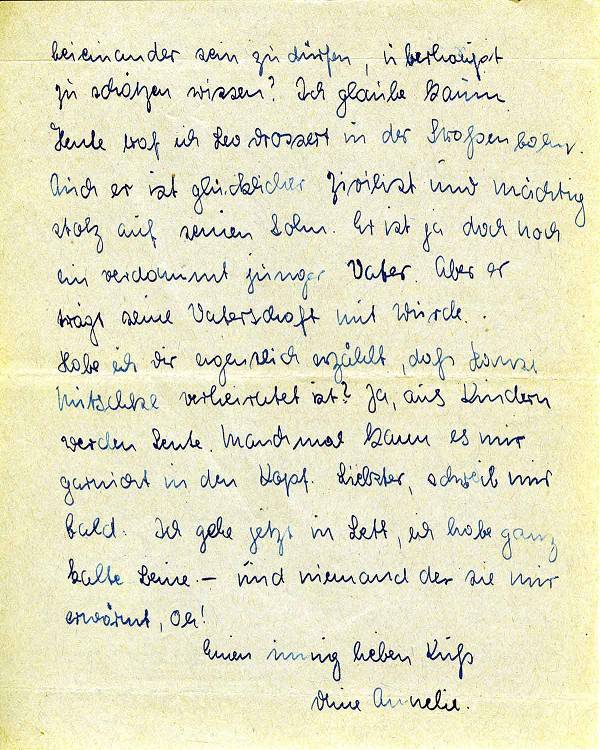 beieinander sein zu dürfen, überhaupt
zu schätzen wissen? Ich glaube kaum.
Heute traf ich Leo Drossert in der Straßenbahn.
Auch er ist glücklicher Zivilist und mächtig
stolz auf seinen Sohn. Er ist ja doch noch
ein verdammt junger Vater. Aber er
trägt seine Vaterschaft mit Würde.
Habe ich dir eigentlich erzählt, daß
Nitschke verheiratet ist? Ja, aus Kindern
werden Leute. Manchmal kann es mir
garnicht in den Kopf. Liebster, schreib mir
bald. Ich gehe jetzt in Bett, ich habe ganz
kalte Beine – und niemand der sie mir
erwärmt, Oh!
Einen innig lieben Kuß
deine Annelie.